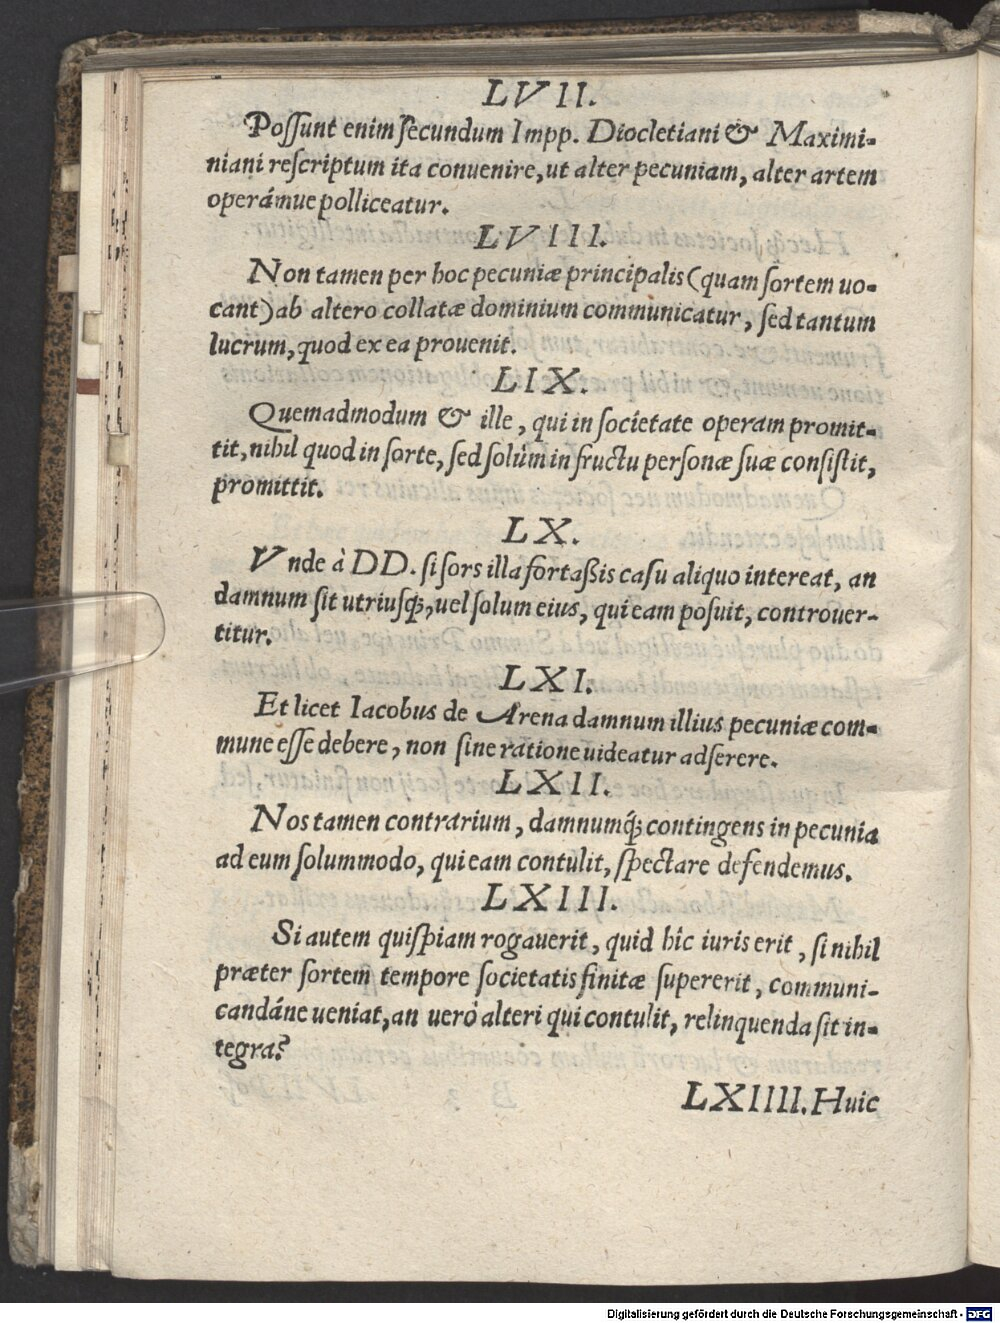 LVII.
Poſſunt enim ſecundum Impp. Diocletiani & Maximi-
niani reſcriptum ita convenire, ut alter pecuniam, alter artem
operámue polliceatur.
LVIII.
Non tamen per hoc pecuniæ principalis (quam ſortem uo-
cant) ab altero collatæ dominium communicatur, ſed tantum
lucrum, quod ex ea prouenit.
LIX.
Quemadmodum & ille, qui in ſocietate operam promit-
tit, nihil quod in ſorte, ſed ſolùm in fructu perſonæ ſuæ conſiſtit,
promittit.
LX.
Vnde à DD. ſi ſors illa fortaßis caſu aliquo intereat, an
damnum ſit utriuſq;, uel ſolum eius, qui eam poſuit, controuer-
titur.
LXI.
Et licet Iacobus de Arena damnum illius pecuniæ com-
mune eſſe debere, non ſine ratione uideatur adſerere.
LXII.
Nos tamen contrarium, damnumq́; contingens in pecunia
ad eum ſolummodo, qui eam contulit, ſpectare defendemus.
LXIII.
Si autem quiſpiam rogauerit, quid hîc iuris erit, ſi nihil
præter ſortem tempore ſocietatis finitæ ſupererit, communi-
candáne ueniat, an uerò alteri qui contulit, relinquenda ſit in-
tegra?
LXIIII. Huic
Digitalisierung gefördert durch die Deutsche Forschungsgemeinschaft - DFG